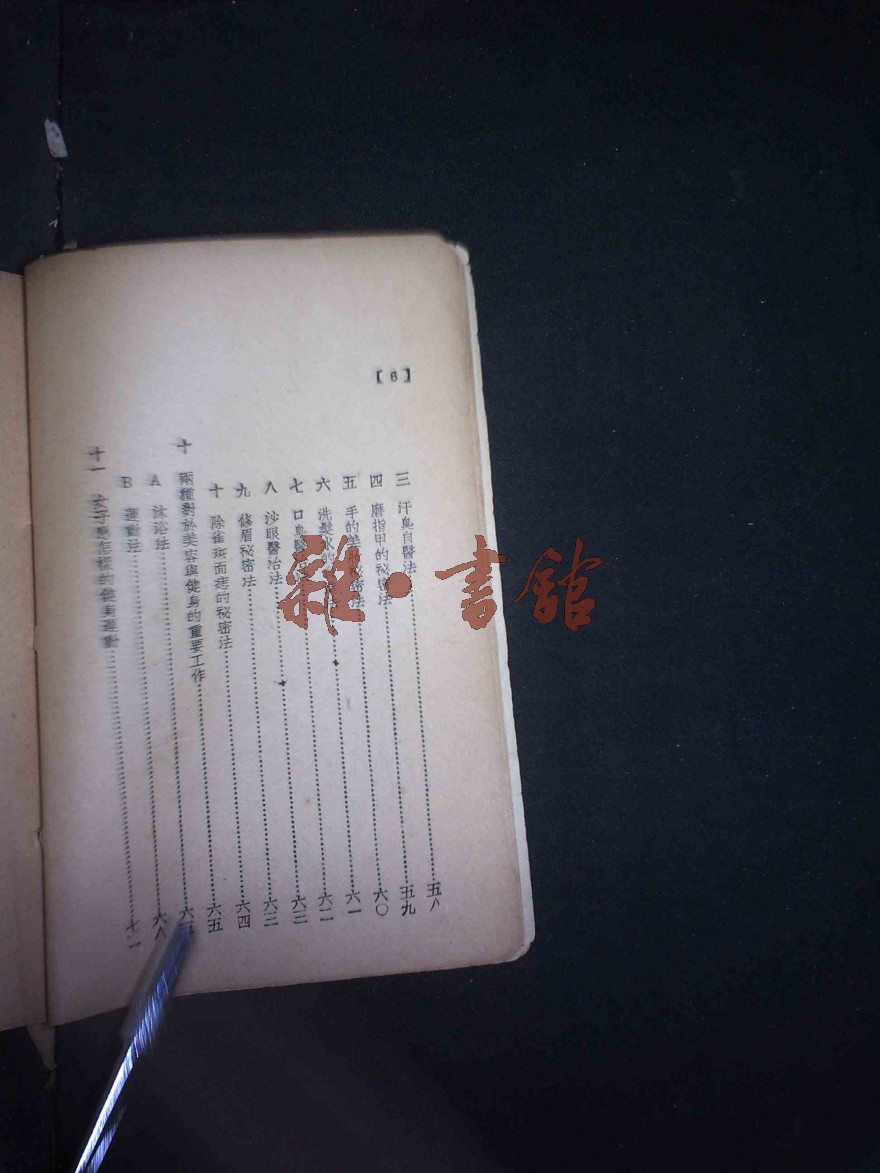 【6】
三 汗臭自醫法……五八
四 磨指甲的秘密法……五九
五 手的美妝秘密法……六〇
六 洗髮水的……六一
七 口臭醫……六二
八 沙眼醫治法……六三
九 修眉秘密法……六三
十 除雀斑面痣的秘密法……六四
十 兩種對於美容與健身的重要工作……六五
A 沐浴法……六五
B 運動法……六八
十一 女子應怎樣的健身運動……七二
雜·書館